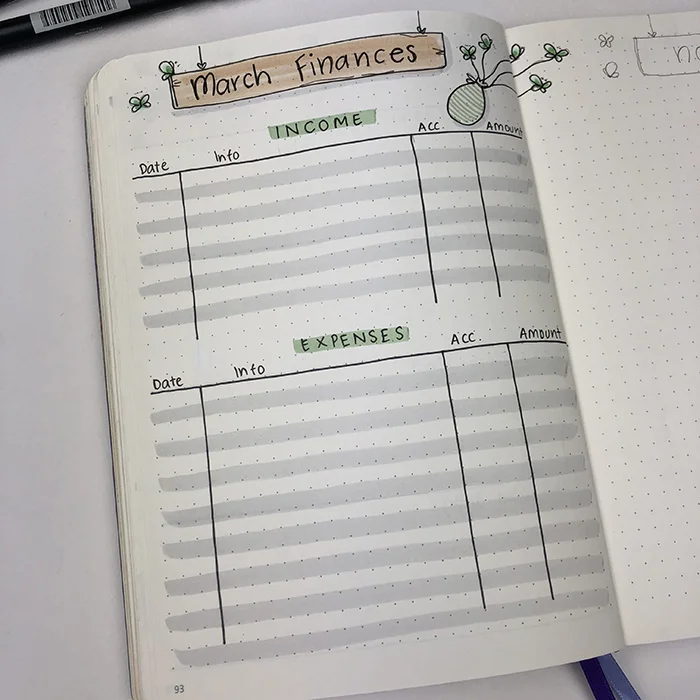 March Finances
INCOME
Date Info Acc. Amount
EXPENSES
Date Info Acc. Amount
93